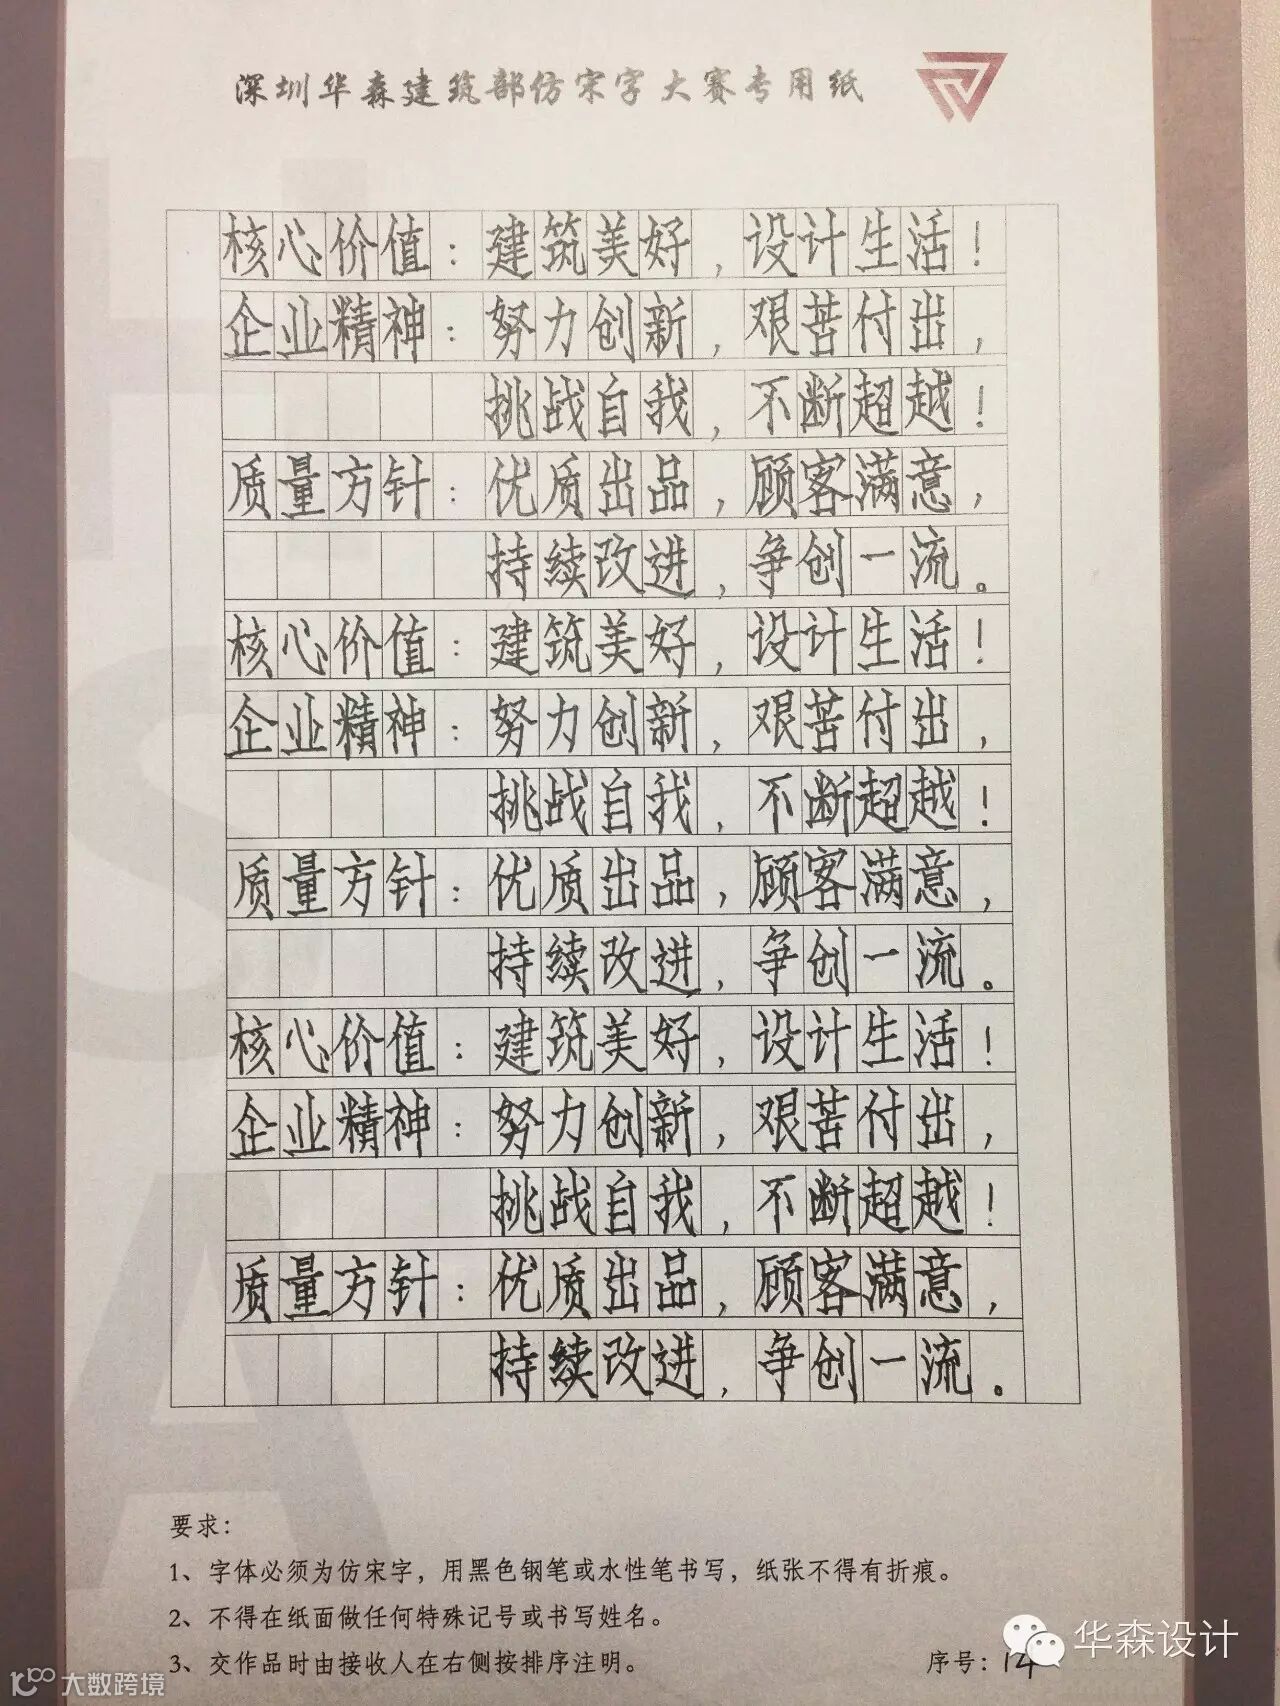 深圳华森建筑部仿宋字大赛专用纸
核心价值：建筑美好，设计生活！
企业精神：努力创新，艰苦付出，
挑战自我，不断超越！
质量方针：优质出品，顾客满意，
持续改进，争创一流。
核心价值：建筑美好，设计生活！
企业精神：努力创新，艰苦付出，
挑战自我，不断超越！
质量方针：优质出品，顾客满意，
持续改进，争创一流。
核心价值：建筑美好，设计生活！
企业精神：努力创新，艰苦付出，
挑战自我，不断超越！
质量方针：优质出品，顾客满意，
持续改进，争创一流。
要求：
1、字体必须为仿宋字，用黑色钢笔或水性笔书写，纸张不得有折痕。
2、不得在纸面做任何特殊记号或书写姓名。
3、交作品时由接收人在右侧按排序注明。
序号：14
华森设计
大数跨境
HSA